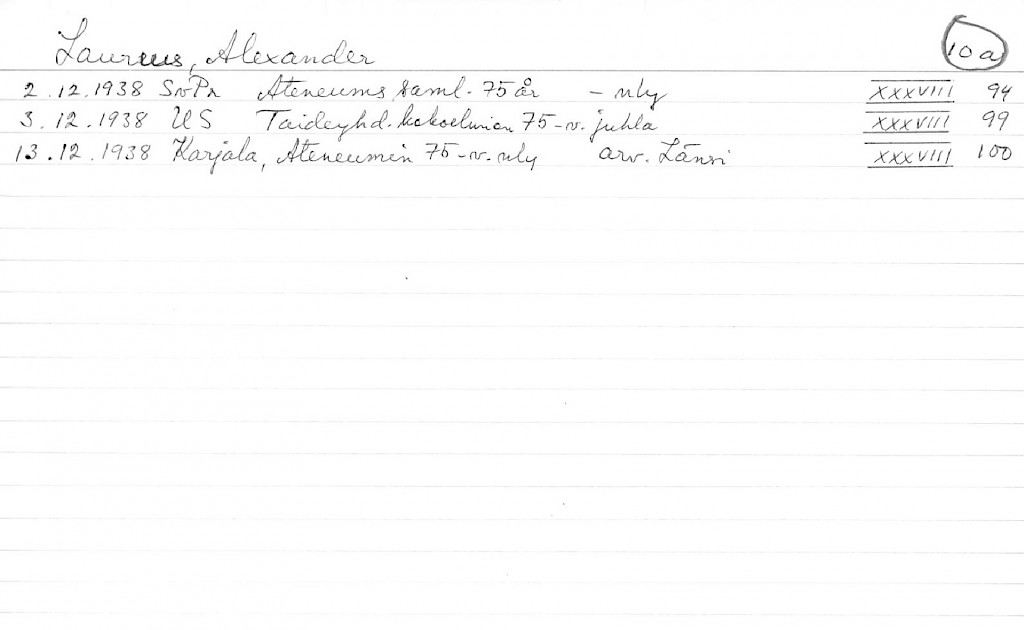 Laureus, Alexander 10a
2.12.1938 SvPr Ateneums saml. 75 år - nly XXXVIII 94
3.12.1938 US Taideyhd. kokoelmien 75-v. juhla XXXVIII 99
13.12.1938 Karjala, Ateneumin 75-v. nly arv. Länsi XXXVIII 100